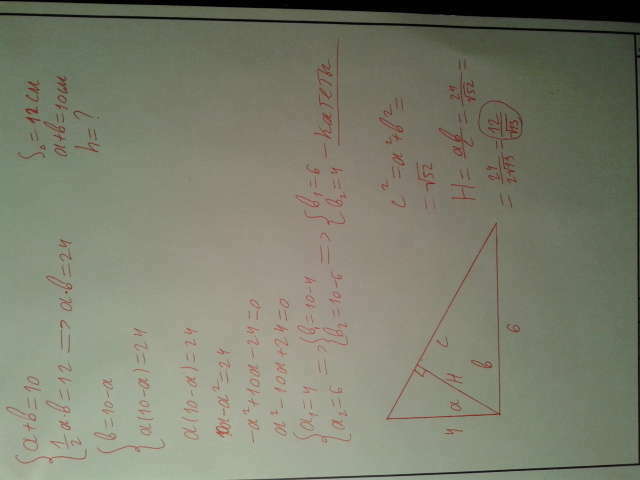 a+b=10
1/2 a·b=12 => a·b=24
S△=12см
a+b=10см
h=?
b=10-a
a(10-a)=24
a(10-a)=24
10a-a²=24
-a²+10a-24=0
a²-10a+24=0
a₁=4 => b₁=10-4 => b₁=6
a₂=6 b₂=10-6 b₂=4 - катеты
c²=a²+b²=
=√52
H=ab/c=24/√52=
=24/2√13=12/√13
4 a H c
b
6